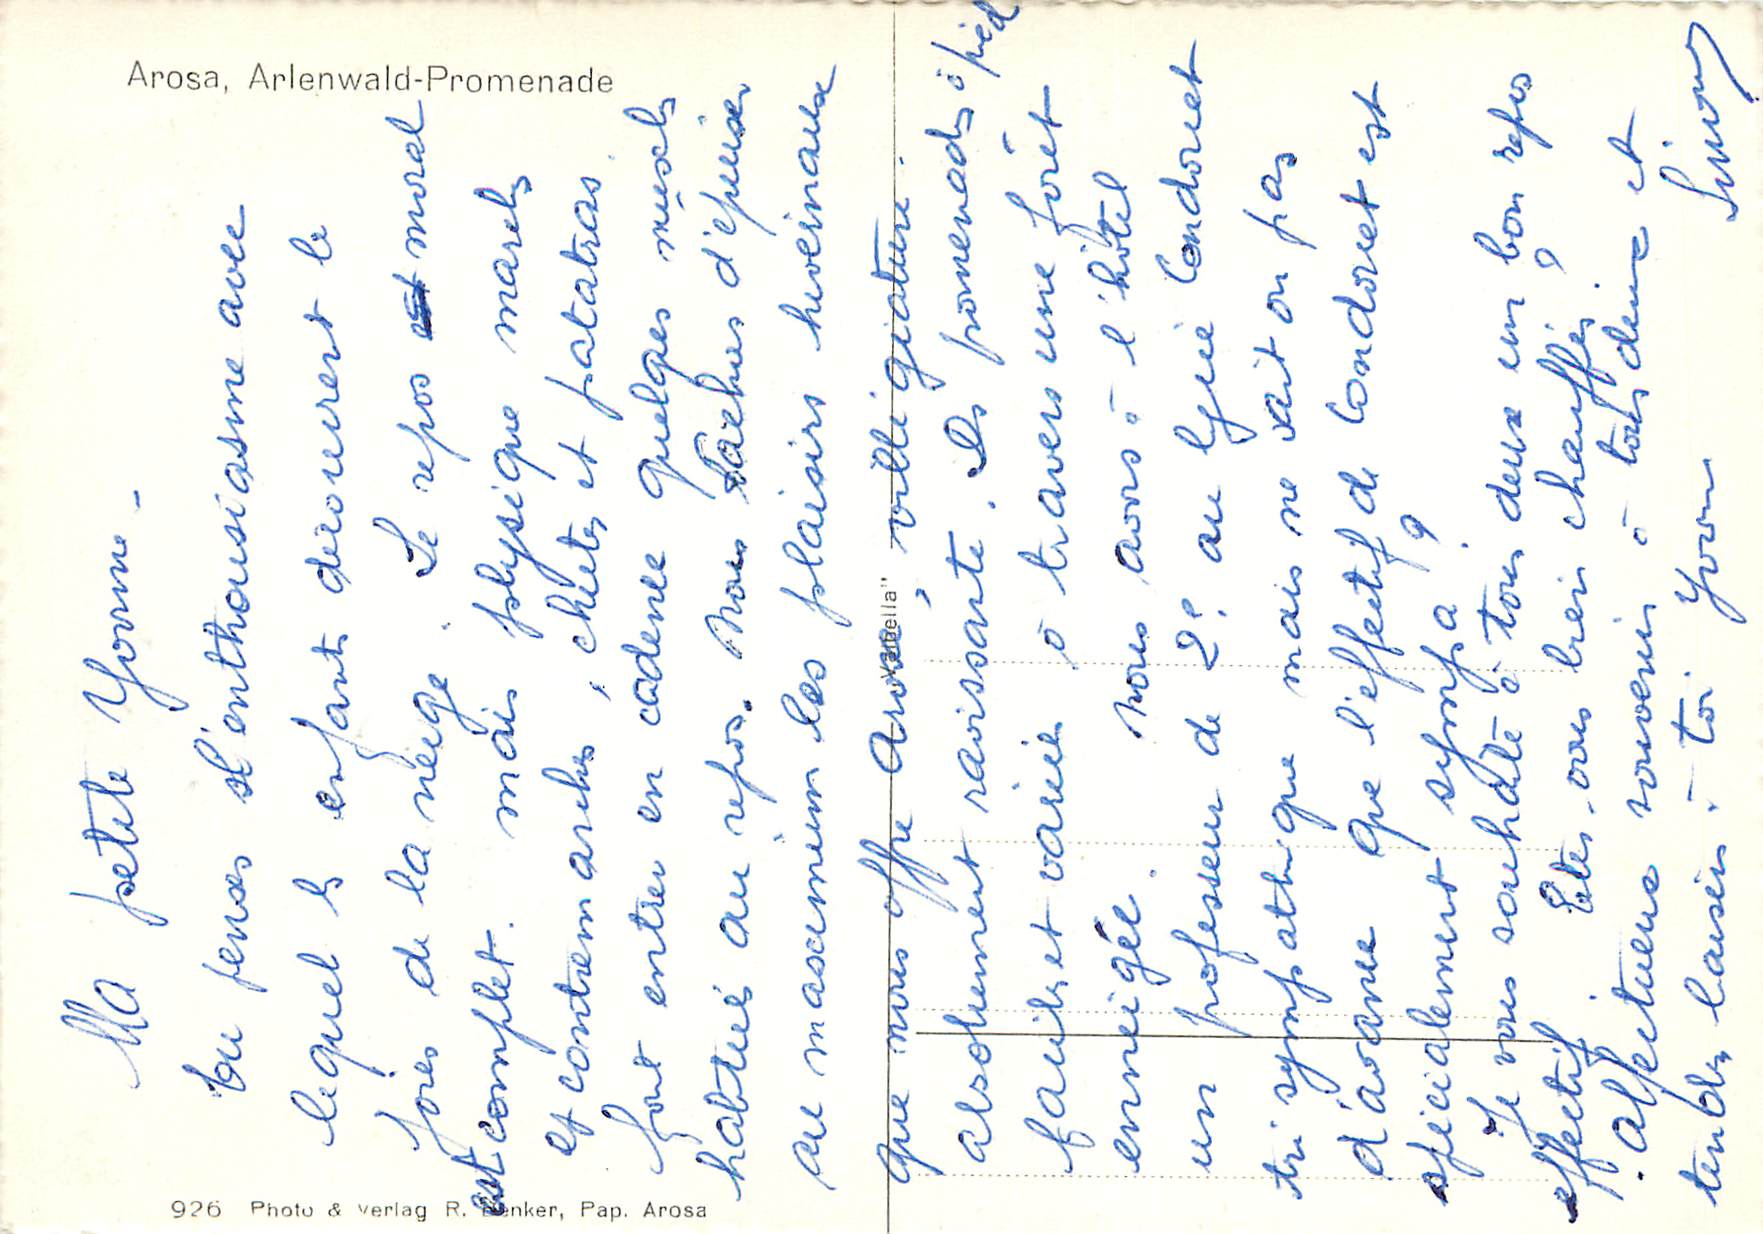 Arosa, Arlenwald-Promenade
Ma petite Yvonne -
tu penses l'enthousiasme avec
lequel les enfants découvrent les
joies de la neige. Le repos moral
est complet. mais physique marches
et contremarches, chutes et patatras
font entrer en cadence quelques muscles
habitués au repos. Nous tachons d'épuiser
au maximum les plaisirs hivernaux
que nous offre Arosa, villégiature
absolument ravissante. Des promenades à pied
faciles et variées à travers une forêt
enneigée. Nous avons à l'hôtel
un professeur de 2e au lycée Condorcet
très sympathique mais ne sait on pas
d'avance que l'effectif de Condorcet est
spécialement sympa?
Je vous souhaite à tous deux un bon repos
effectif. Etes-vous bien chauffés?
Affectueux souvenir à tous deux et
tendres baisers à toi Yvonne
Simony
"Valbella"
926 Photo & Verlag R. Denker, Pap. Arosa